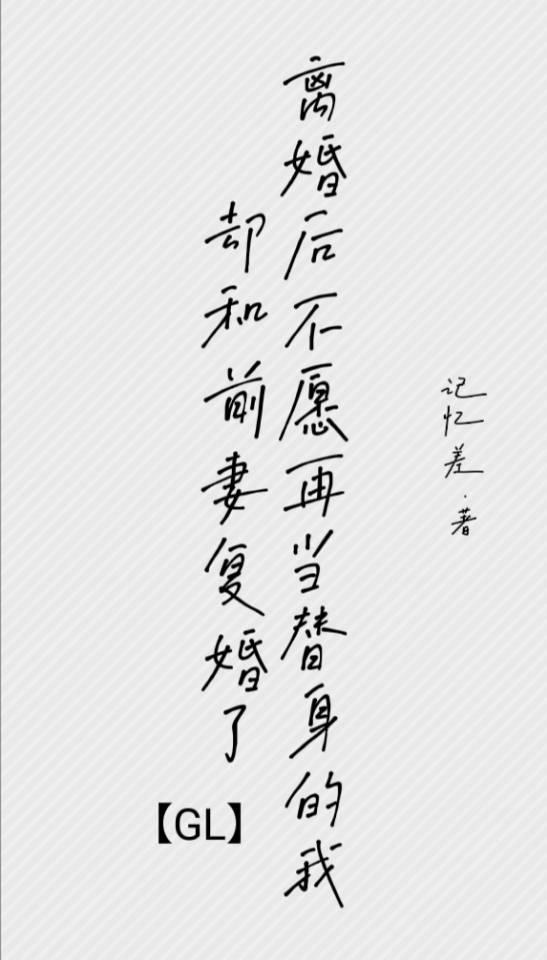 记忆差·著
离婚后不愿再当替身的我
却和前妻复婚了
【GL】